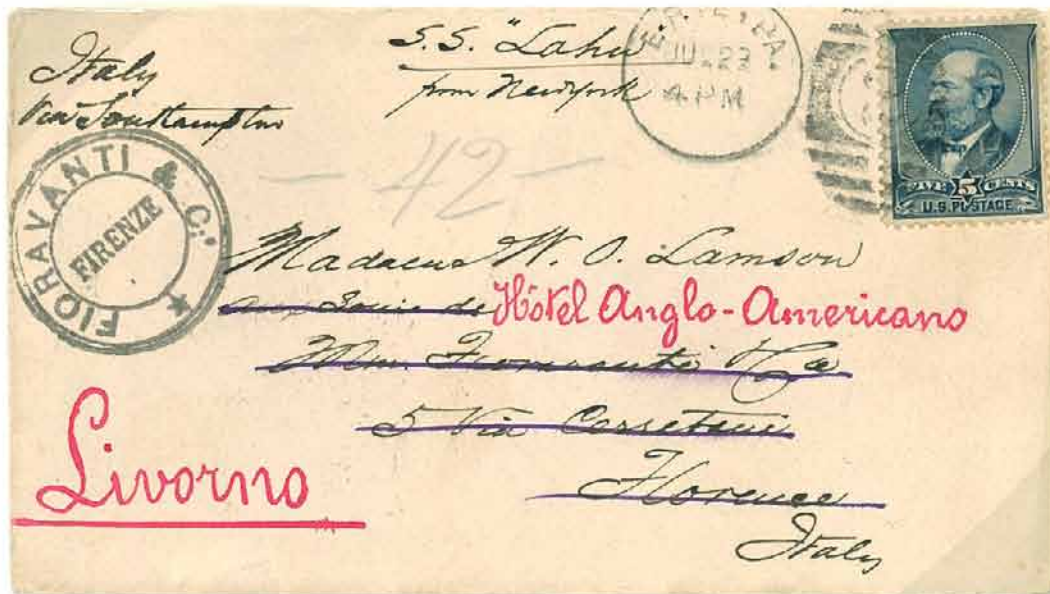 Italy
Via Southampton
S.S. "Lahn"
from New York
JUL 23
4 PM
FIVE 5 CENTS
U.S. POSTAGE
FIORAVANTI & C.º
FIRENZE
- 42 -
Madame W. O. Lamson
aux soins de Hôtel Anglo-Americano
Mm. Fioravanti & Cie
5 Via Cerretani
Florence
Italy
Livorno